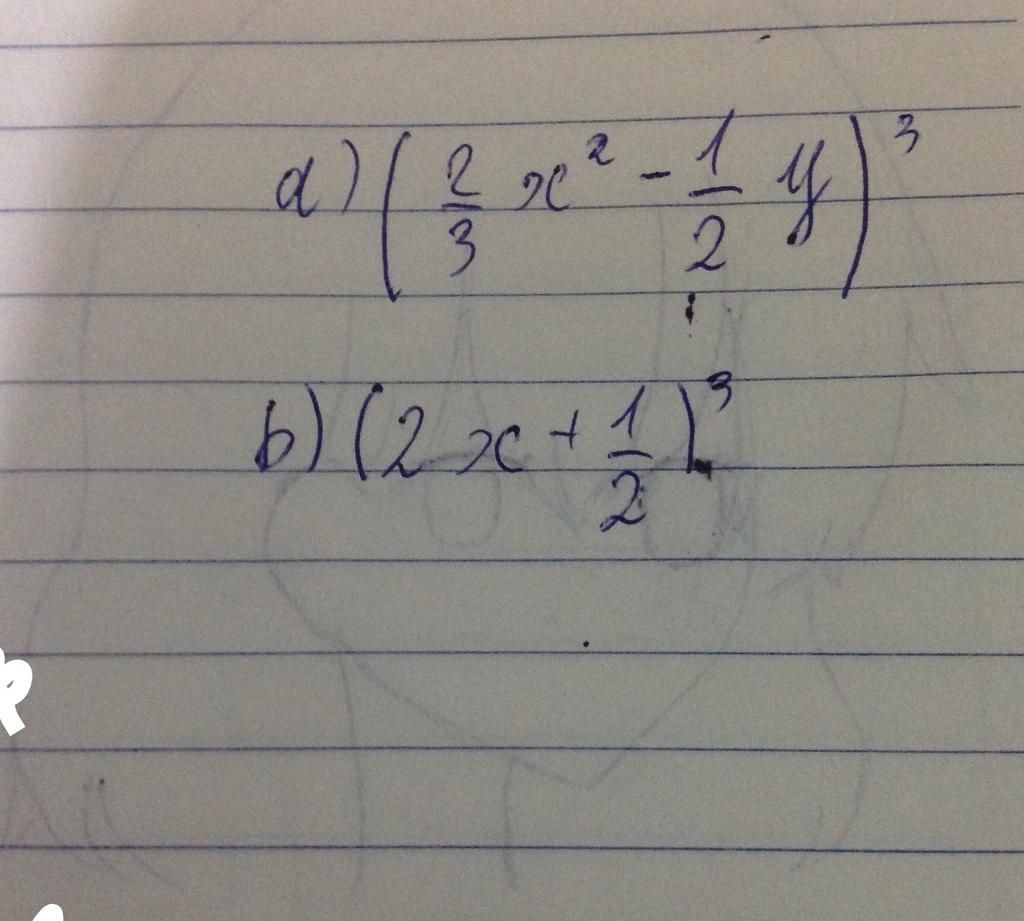 a) (2/3 x² - 1/2 y)³
b) (2x + 1/2)³